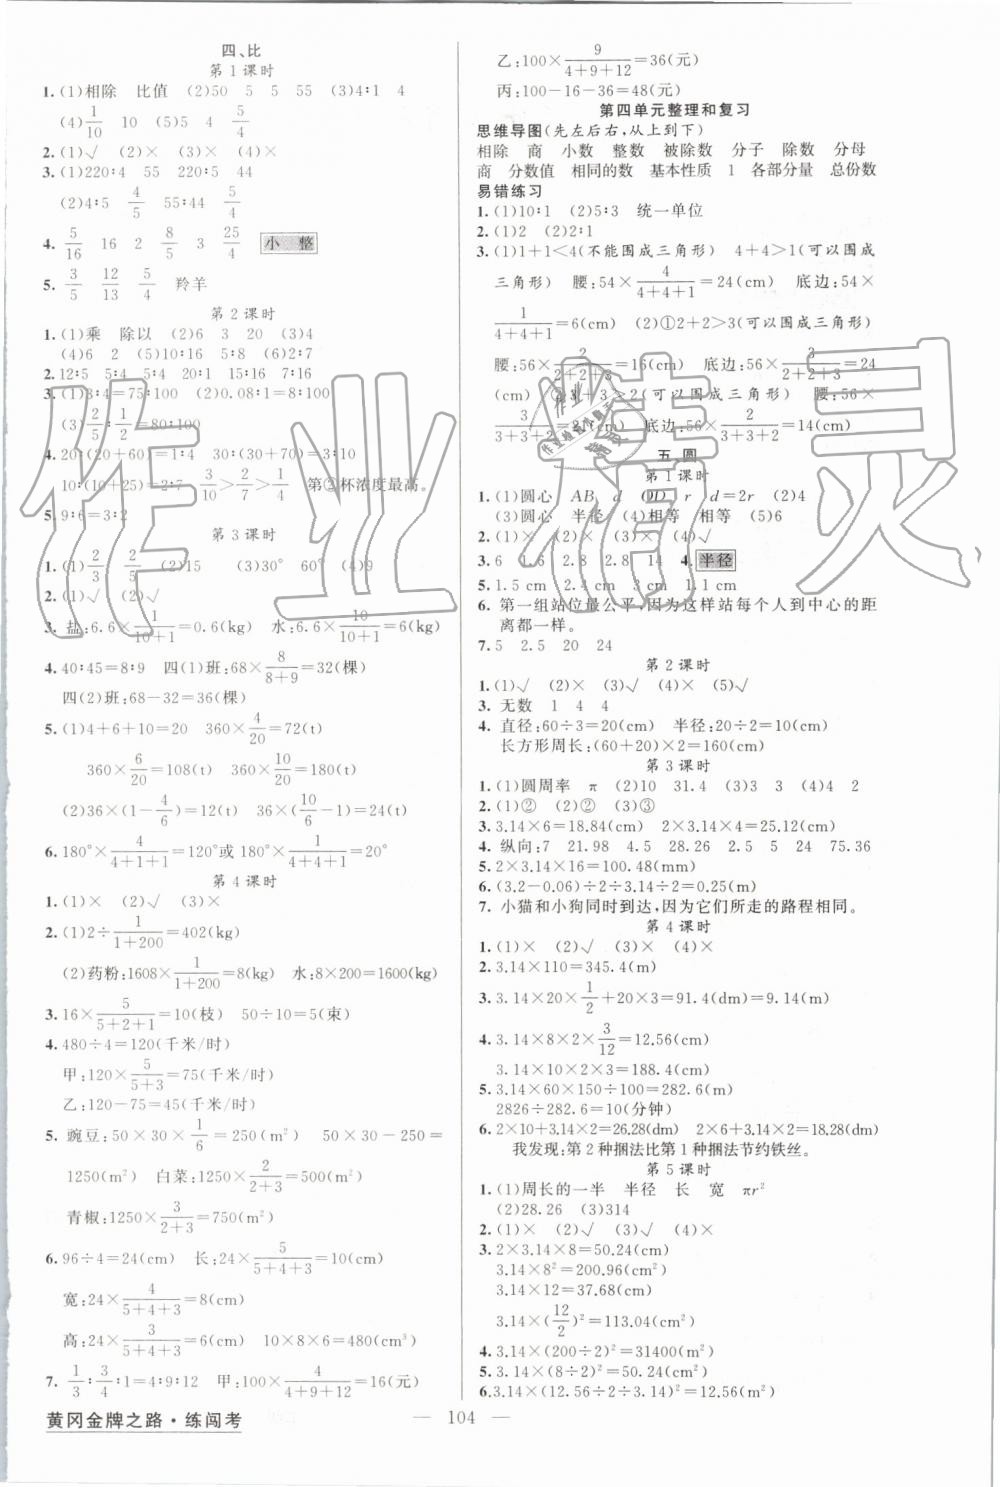 四、比
第1课时
1. (1)相除 比值 (2)50 5 5 55 (3)4∶1 4
(4)1/10 10 (5)5 4
2. (1)√ (2)× (3)×
3. (1)220∶4 55 220∶5 44
(2)4∶5 4/5 55∶44 5/4
4. 5/16 16 2 8/5 3 25/4 小 整
5. 3/5 12/13 5/4 羚羊
第2课时
1. (1)乘 除以 (2)6 3 20 (3)4
(4)6 2 (5)10∶16 5∶8 (6)2∶7
2. 12∶5 5∶4 5∶4 20∶1 15∶16 7∶16
3. (1)3∶4=75∶100 (2)0.08∶1=8∶100
(3)2/5∶1/2=80∶100
4. 20∶(20+60)=1∶4 30∶(30+70)=3∶10
10∶(10+25)=2∶7 3/10>2/7>1/4 第②杯浓度最高。
5. 9∶6=3∶2
第3课时
1. (1)2/3 2/5 (2)15 (3)30° 60° (4)9
2. (1)√ (2)√
3. 盐:6.6×1/(10+1)=0.6(kg) 水:6.6×10/(10+1)=6(kg)
4. 40∶45=8∶9 四(1)班:68×8/(8+9)=32(棵)
四(2)班:68-32=36(棵)
5. (1)4+6+10=20 360×4/20=72(t)
360×6/20=108(t) 360×10/20=180(t)
(2)36×(1-4/6)=12(t) 36×(10/6-1)=24(t)
6. 180°×4/(4+1+1)=120°或180°×1/(4+4+1)=20°
第4课时
1. (1)× (2)√ (3)×
2. (1)2÷1/(1+200)=402(kg)
(2)药粉:1608×1/(1+200)=8(kg) 水:8×200=1600(kg)
3. 16×5/(5+2+1)=10(枝) 50÷10=5(束)
4. 480÷4=120(千米/时)
甲:120×5/(5+3)=75(千米/时)
乙:120-75=45(千米/时)
5. 豌豆:50×30×1/6=250(m²) 50×30-250=
1250(m²) 白菜:1250×2/(2+3)=500(m²)
青椒:1250×3/(2+3)=750(m²)
6. 96÷4=24(cm) 长:24×5/(5+4+3)=10(cm)
宽:24×4/(5+4+3)=8(cm)
高:24×3/(5+4+3)=6(cm) 10×8×6=480(cm³)
7. 1/3∶3/4∶1=4∶9∶12 甲:100×4/(4+9+12)=16(元)
黄冈金牌之路·练闯考
乙:100×9/(4+9+12)=36(元)
丙:100-16-36=48(元)
第四单元整理和复习
思维导图(先左后右,从上到下)
相除 商 小数 整数 被除数 分子 除数 分母
商 分数值 相同的数 基本性质 1 各部分量 总份数
易错练习
1. (1)10∶1 (2)5∶3 统一单位
2. (1)2 (2)2∶1
3. (1)1+1<4(不能围成三角形) 4+4>1(可以围成
三角形) 腰:54×4/(4+4+1)=24(cm) 底边:54×
1/(4+4+1)=6(cm) (2)①2+2>3(可以围成三角形)
腰:56×2/(2+2+3)=16(cm) 底边:56×3/(2+2+3)=24
(cm) ②3+3>2(可以围成三角形) 腰:56×
3/(3+3+2)=21(cm) 底边:56×2/(3+3+2)=14(cm)
五 圆
第1课时
1. (1)圆心 AB d CD r d=2r (2)4
(3)圆心 半径 (4)相等 相等 (5)6
2. (1)× (2)× (3)× (4)√
3. 6 1.6 2.8 2.8 14 4. 半径
5. 1.5 cm 2.4 cm 3 cm 1.1 cm
6. 第一组站位最公平,因为这样站每个人到中心的距
离都一样。
7. 5 2.5 20 24
第2课时
1. (1)√ (2)× (3)√ (4)× (5)√
3. 无数 1 4 4
4. 直径:60÷3=20(cm) 半径:20÷2=10(cm)
长方形周长:(60+20)×2=160(cm)
第3课时
1. (1)圆周率 π (2)10 31.4 (3)3 3 (4)4 2
2. (1)② (2)② (3)③
3. 3.14×6=18.84(cm) 2×3.14×4=25.12(cm)
4. 纵向:7 21.98 4.5 28.26 2.5 5 24 75.36
5. 2×3.14×16=100.48(mm)
6. (3.2-0.06)÷2÷3.14÷2=0.25(m)
7. 小猫和小狗同时到达,因为它们所走的路程相同。
第4课时
1. (1)× (2)√ (3)× (4)×
2. 3.14×110=345.4(m)
3. 3.14×20×1/2+20×3=91.4(dm)=9.14(m)
4. 3.14×8×2×3/12=12.56(cm)
3.14×10×2×3=188.4(cm)
5. 3.14×60×150÷100=282.6(m)
2826÷282.6=10(分钟)
6. 2×10+3.14×2=26.28(dm) 2×6+3.14×2=18.28(dm)
我发现:第2种捆法比第1种捆法节约铁丝。
第5课时
1. (1)周长的一半 半径 长 宽 πr²
(2)28.26 (3)314
2. (1)× (2)√ (3)√ (4)×
3. 2×3.14×8=50.24(cm)
3.14×8²=200.96(cm²)
3.14×12=37.68(cm)
3.14×(12/2)²=113.04(cm²)
4. 3.14×(200÷2)²=31400(m²)
5. 3.14×(8÷2)²=50.24(cm²)
6. 3.14×(12.56÷3.14÷2)²=12.56(m²)
— 104 —
作业精灵